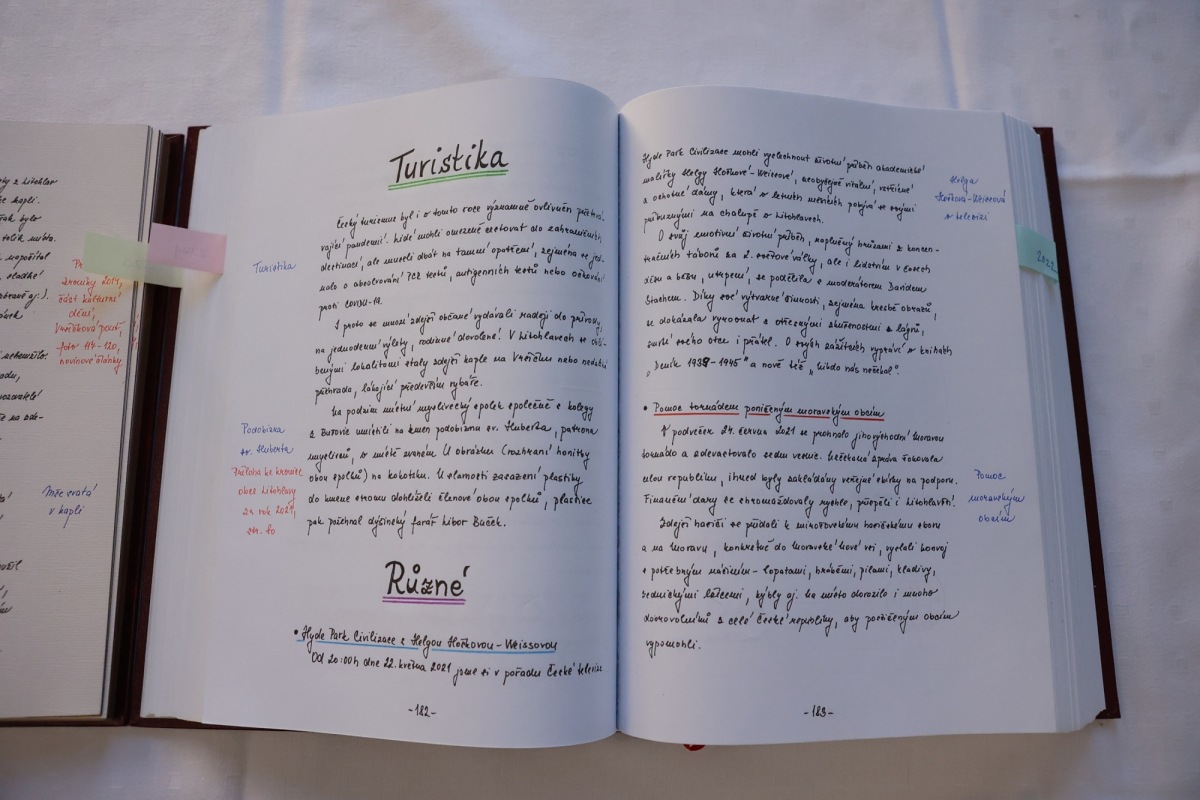 y z Litohlav
kapli.
bylo
tolik místa.
napočítal
sladké
aj.).
nebeněilo.
zroniky 2014,
část kulturní
dění,
Vršíčková pouť,
foto 117-120,
novinové články
Mše svatá
v kapli
Turistika
Turistika
Český turismus byl i v tomto roce významně ovlivněn přetrvá-
vající pandemií. Lidé mohli omezeně cestovat do zahraničních
destinací, ale museli dbát na tamní opatření, zejména se jed-
nalo o absolvování PCR testů, antigenních testů nebo očkování
proti COVIDU-19.
I proto se mnozí zdejší občané vydávali raději do přírody,
na jednodenní výlety, rodinné dovolené. V Litohlavech se oblí-
benými lokalitami staly zdejší kaple na Vršíčku nebo nedaleká
přehrada, lákající především rybáře.
Podobizna
sv. Huberta
Příloha ke kronice
obce Litohlavy
za rok 2021,
str. 80
Na podzim místní myslivecký spolek společně s kolegy
z Butovic umístili na kmen podobiznu sv. Huberta, patrona
myslivců, v místě zvaném U obrázku (rozhraní honitby
obou spolků) na kokotsku. U slavnosti zasazení plastiky
do kmene stromu dohlíželi členové obou spolků, plastice
pak požehnal dýšinský farář Libor Buček.
Různé
• Hyde Park Civilizace s Helgou Hoškovou-Weissovou
Od 20:00h dne 22. května 2021 jsme si v pořadu České televize
-182-
Hyde Park Civilizace mohli vyslechnout životní příběh akademické
malířky Helgy Hoškové-Weissové, neobyčejně vitální, vstřícné
a ochotné dámy, která v letních měsících pobývá se svými
příbuznými na chalupě v Litohlavech.
Helga
Hošková-Weissová
v televizi
O svůj emotivní životní příběh, naplněný hrůzami z koncen-
tračních táborů za 2. světové války, ale i lidstvím v časech
děsu a běsu, utrpení, se podělila s moderátorem Danielem
Stachem. Díky své výtvarné činnosti, zejména kresbě obrazů,
se dokázala vyrovnat s otřesnými zkušenostmi z lágrů,
smrtí svého otce i přátel. O svých zážitcích vypráví v knihách
„Deník 1938-1945" a nově též „Nikdo nás nečekal".
2022
• Pomoc tornádem poničeným moravským obcím
V podvečer 24. června 2021 se prohnalo jihovýchodní Moravou
tornádo a zdevastovalo sedm vesnic. Nečekaná zpráva šokovala
celou republiku, ihned byly zakládány veřejné sbírky na podporu.
Finanční dary se shromažďovaly rychle, přispěli i Litohlavští.
Pomoc
moravským
obcím
Zdejší hasiči se přidali k mirošovskému hasičskému sboru
a na Moravu, konkrétně do Moravské Nové Vsi, vyslali konvoj
s potřebným náčiním - lopatami, hráběmi, pilami, kladivy,
zednickými lžícemi, kýbly aj. Na místo dorazilo i mnoho
dobrovolníků z celé České republiky, aby postiženým obcím
vypomohli.
-183-